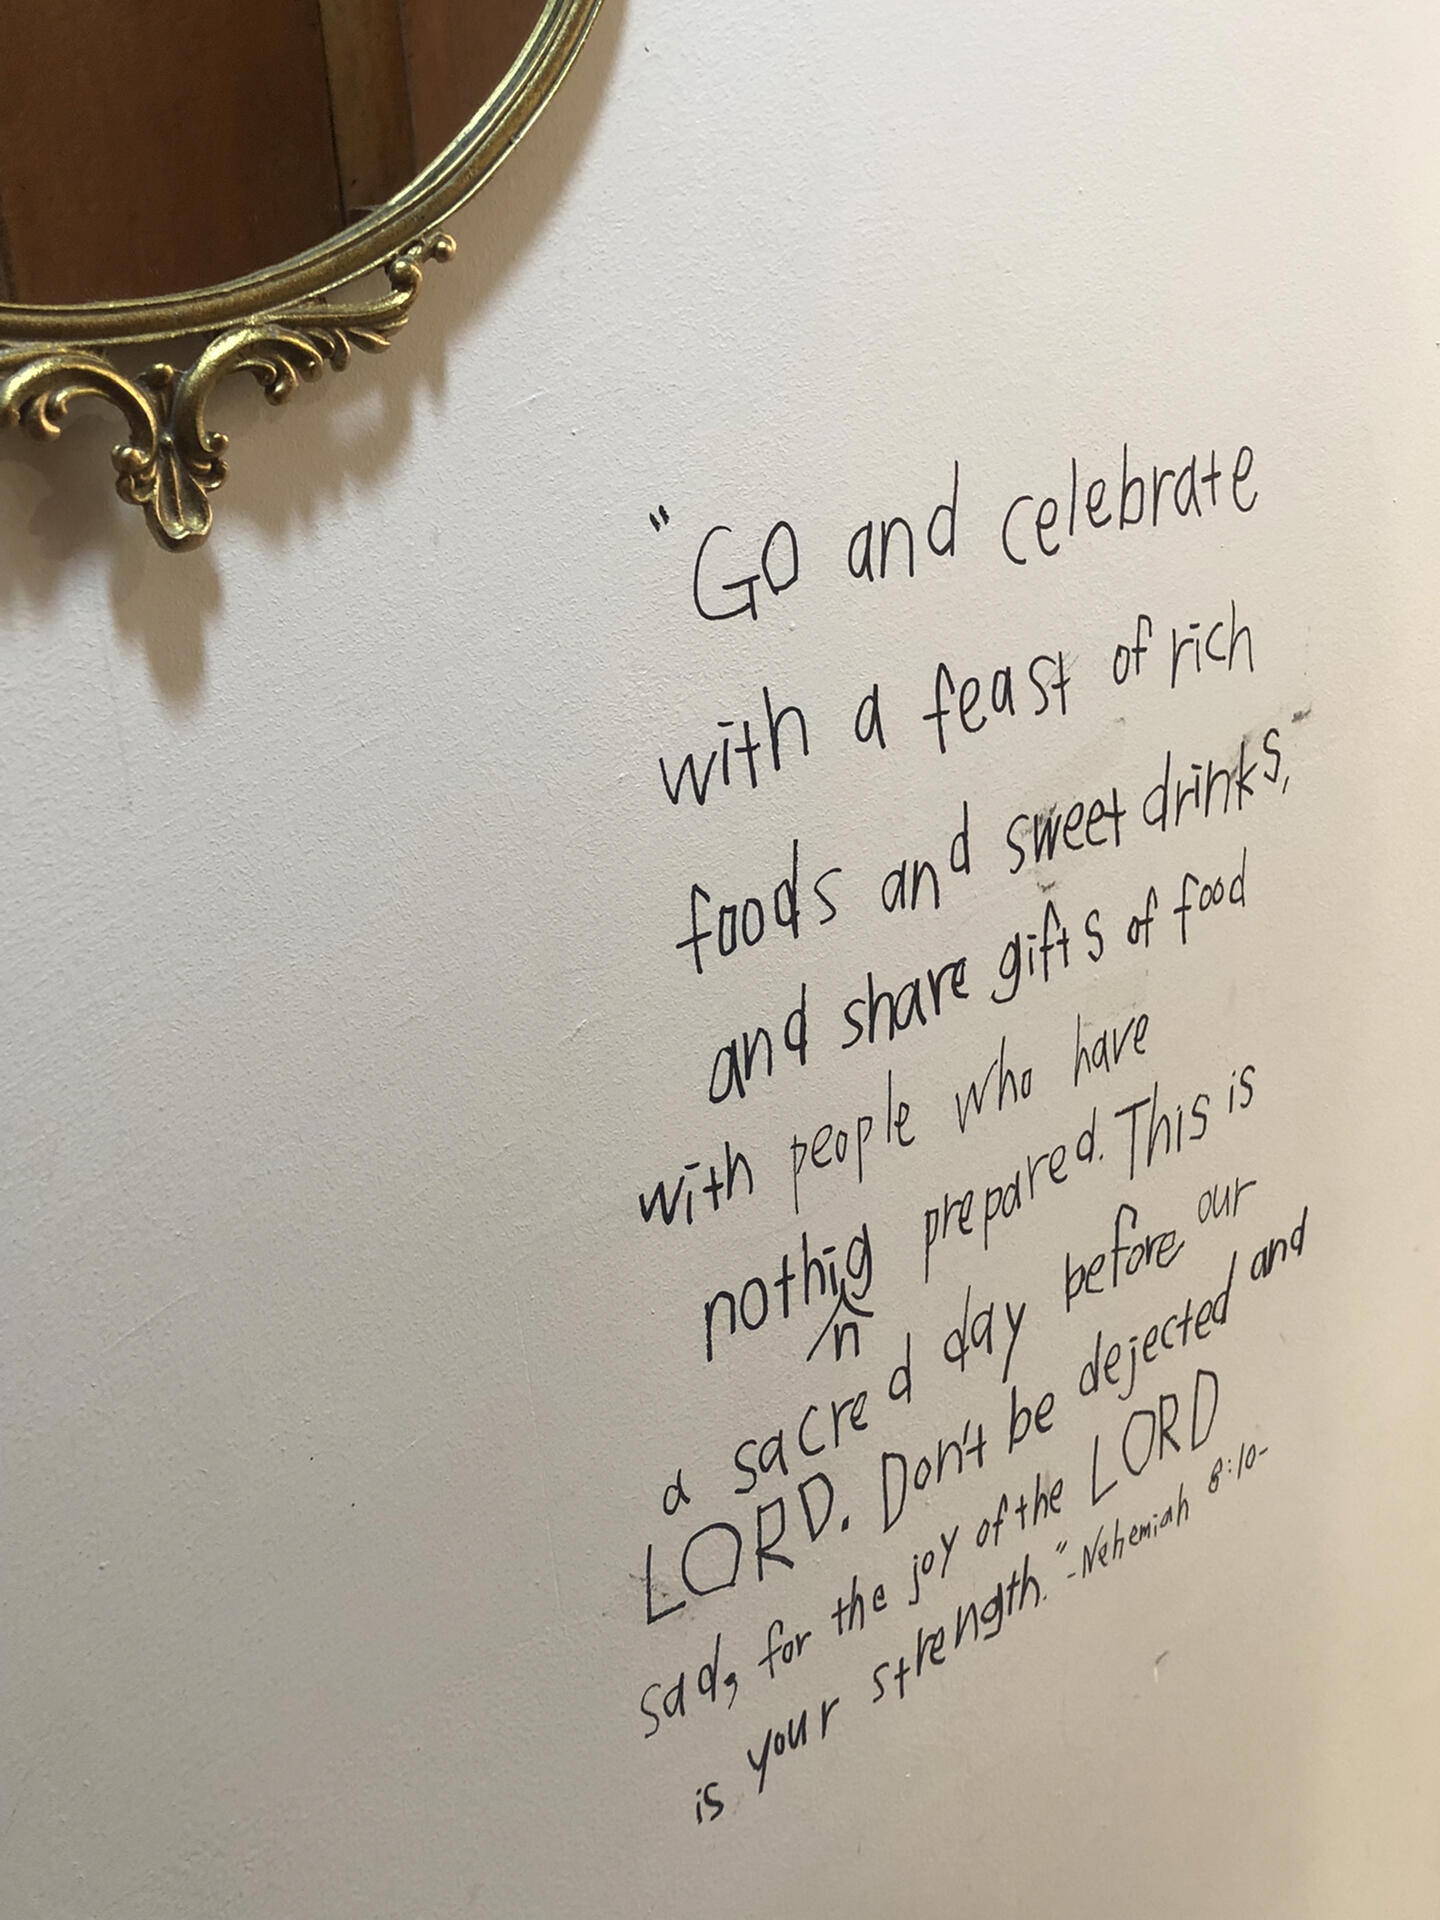 "Go and celebrate
with a feast of rich
foods and sweet drinks,
and share gifts of food
with people who have
nothing prepared. This is
a sacred day before our
LORD. Don't be dejected and
sad, for the joy of the LORD
is your strength." -Nehemiah 8:10-